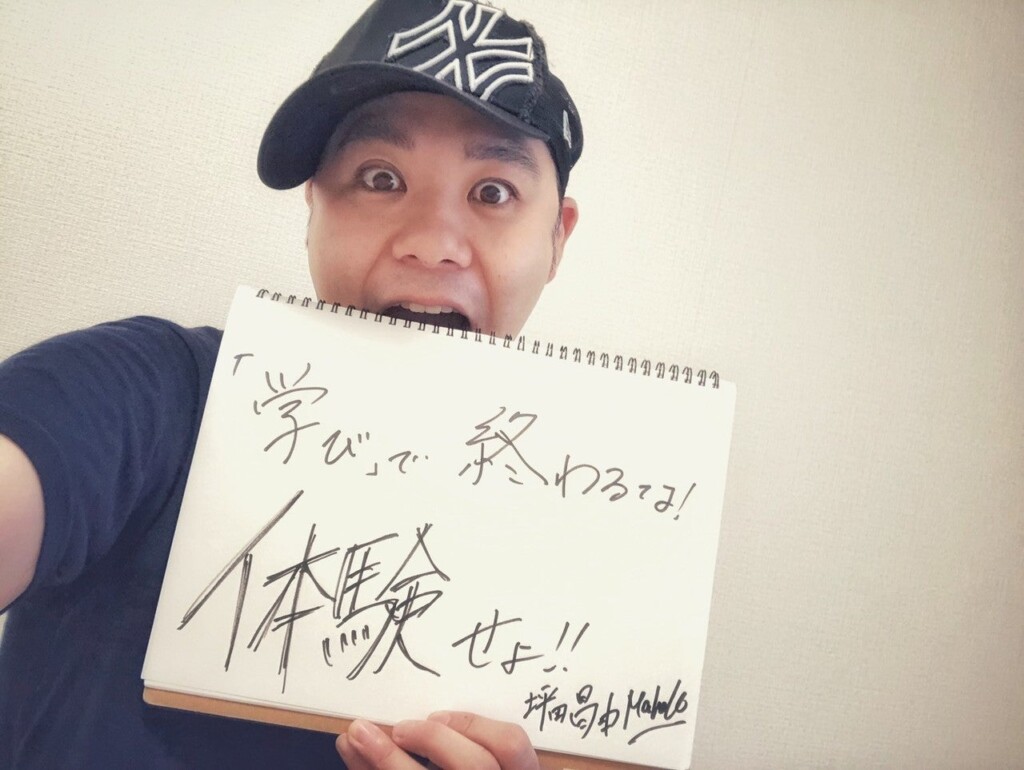 「学び」で 終わるな!
体験せよ!!
坪田昌由 Mahalo